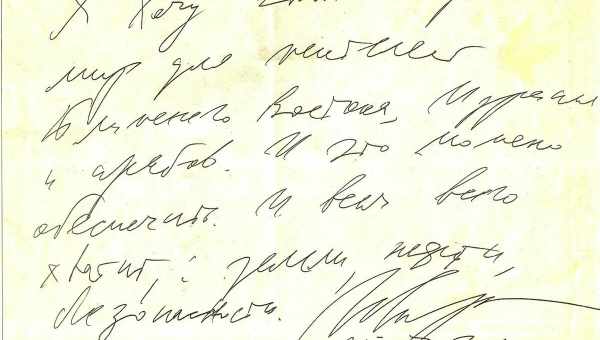 Я хочу
мир для
Ближнего Востока, Израиля
и арабов. И это можно
обеспечить. И всем всего
хватит, : земли, нефти,
безопасности.